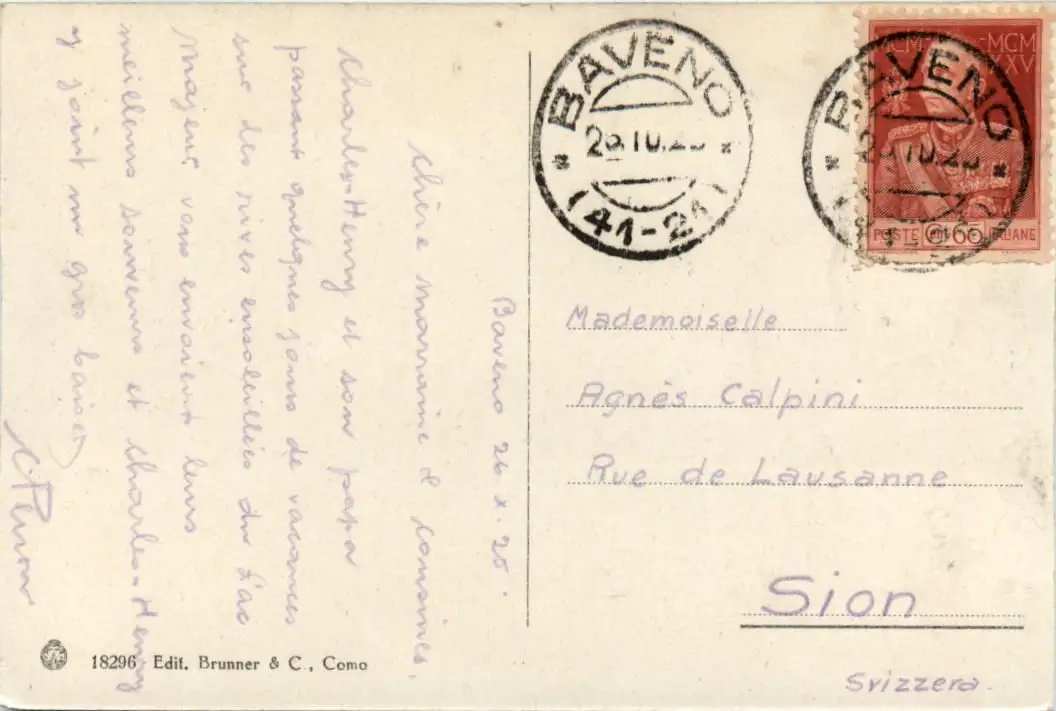 Baveno 26 X. 25.
Chère marraine & cousines,
Charles-Henry et son papa
passant quelques jours de vacances
sur les rives ensoleillées du Lac
Majeur vous envoient leurs
meilleurs souvenirs et Charles-Henry
y joint un gros baiser
BAVENO
26.10.25
(41-21)
MCM MCM
XXV
BAVENO
POSTE
65
ITALIANE
Mademoiselle
Agnès Calpini
Rue de Lausanne
Sion
Svizzera
18296 Edit. Brunner & C., Como